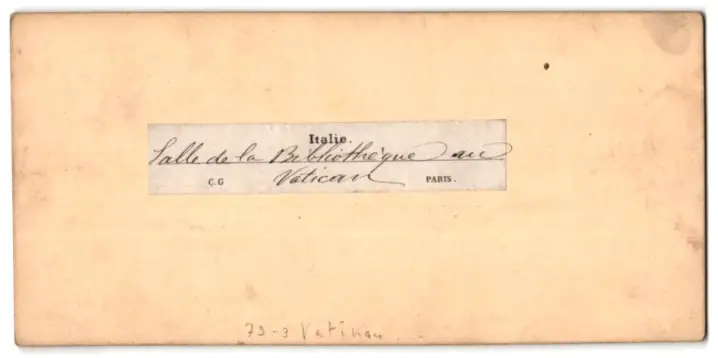 Italie.
Salle de la Bibliothèque au
Vatican
C.G PARIS.
79-3 Vatikan